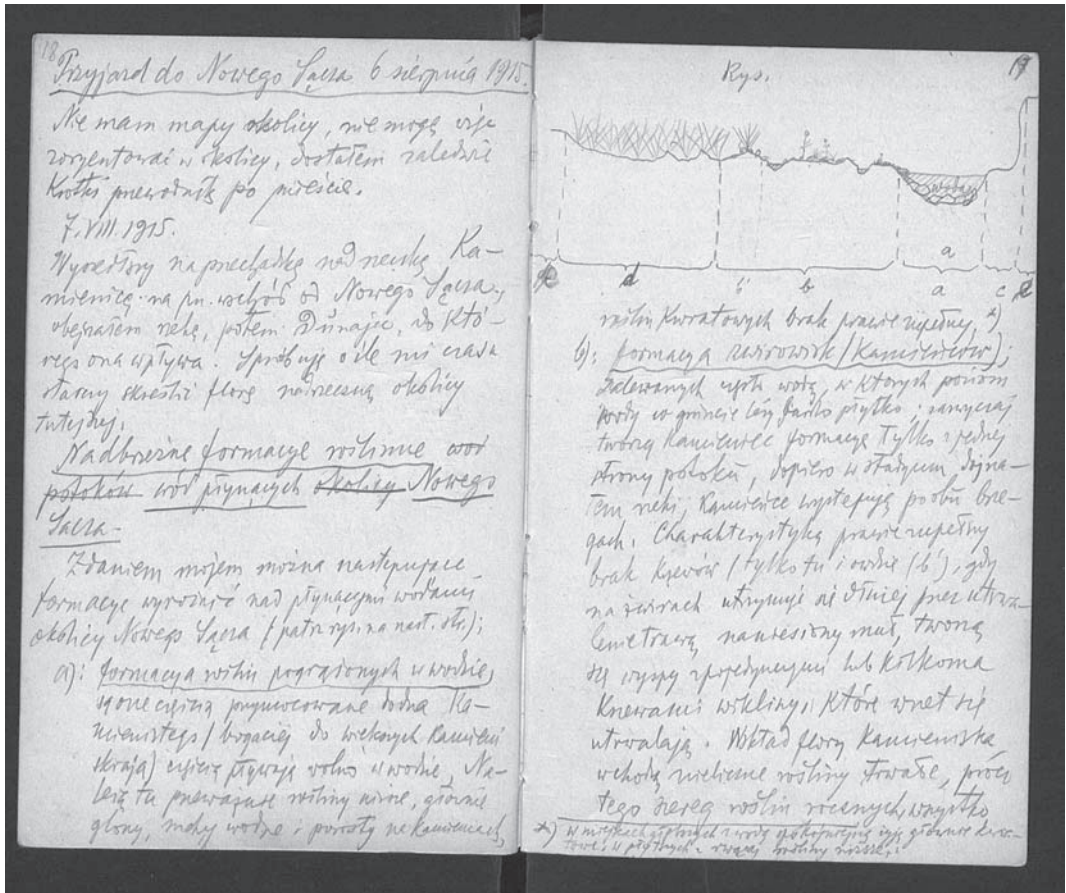 18
Przyjazd do Nowego Sącza 6 sierpnia 1915.
Nie mam mapy okolicy, nie mogę więc
zoryentować w okolicy, dostałem zaledwie
krótki przewodnik po mieście.
7.VIII.1915.
Wyszedłszy na przechadzkę nad rzeczkę Ka-
mienicę na pn. wschód od Nowego Sącza,
obejrzałem rzekę, potem Dunajec, do któ-
rego ona wpływa. Spróbuję o ile mi czasu
starczy skreślić florę nadrzeczną okolicy
tutejszej.
Nadbrzeżne formacye roślinne wód
potoków wód płynących okolicy Nowego
Sącza.
Zdaniem mojem można następujące
formacye wyróżnić nad płynącymi wodami
okolicy Nowego Sącza (patrz rys. na nast. str.);
a): formacya roślin pogrążonych w wodzie,
są one częścią przymocowane do dna Ka-
mienistego (bogaciej do większych kamieni
) częścią pływają wolno w wodzie, Na-
leżą tu przeważnie rośliny niższe, głównie
glony, mchy wodne i porosty na kamieniach,
19
Rys.
woda
a
d b' b a c
roślin kwiatowych brak prawie zupełny. *)
b): formacya żwirowisk (Kamieńców);
zalewanych często wodą, w których poziom
wody w gruncie leży bardzo płytko; zazwyczaj
tworzą kamieniec formacyę tylko z jednej
strony potoku, dopiero w stadyum dojrza-
łem rzeki, kamieńce występują po obu brze-
gach. Charakterystyką prawie zupełny
brak krzewów (tylko tu i owdzie (b'), gdy
na żwirach utrzymuje się dłużej przez utrwa-
lenie trawą naniesiony muł, tworzą
się wyspy z pojedynczymi lub kilkoma
krzewami wikliny, które wnet się
utrwalają. W skład flory kamieniska
wchodzą nieliczne rośliny trwałe, prócz
tego szereg roślin rocznych, wszystko
*) w miejscach głębszych z wodą spokojniejszą żyją głównie
w płytkich z rwącą rośliny niższe.